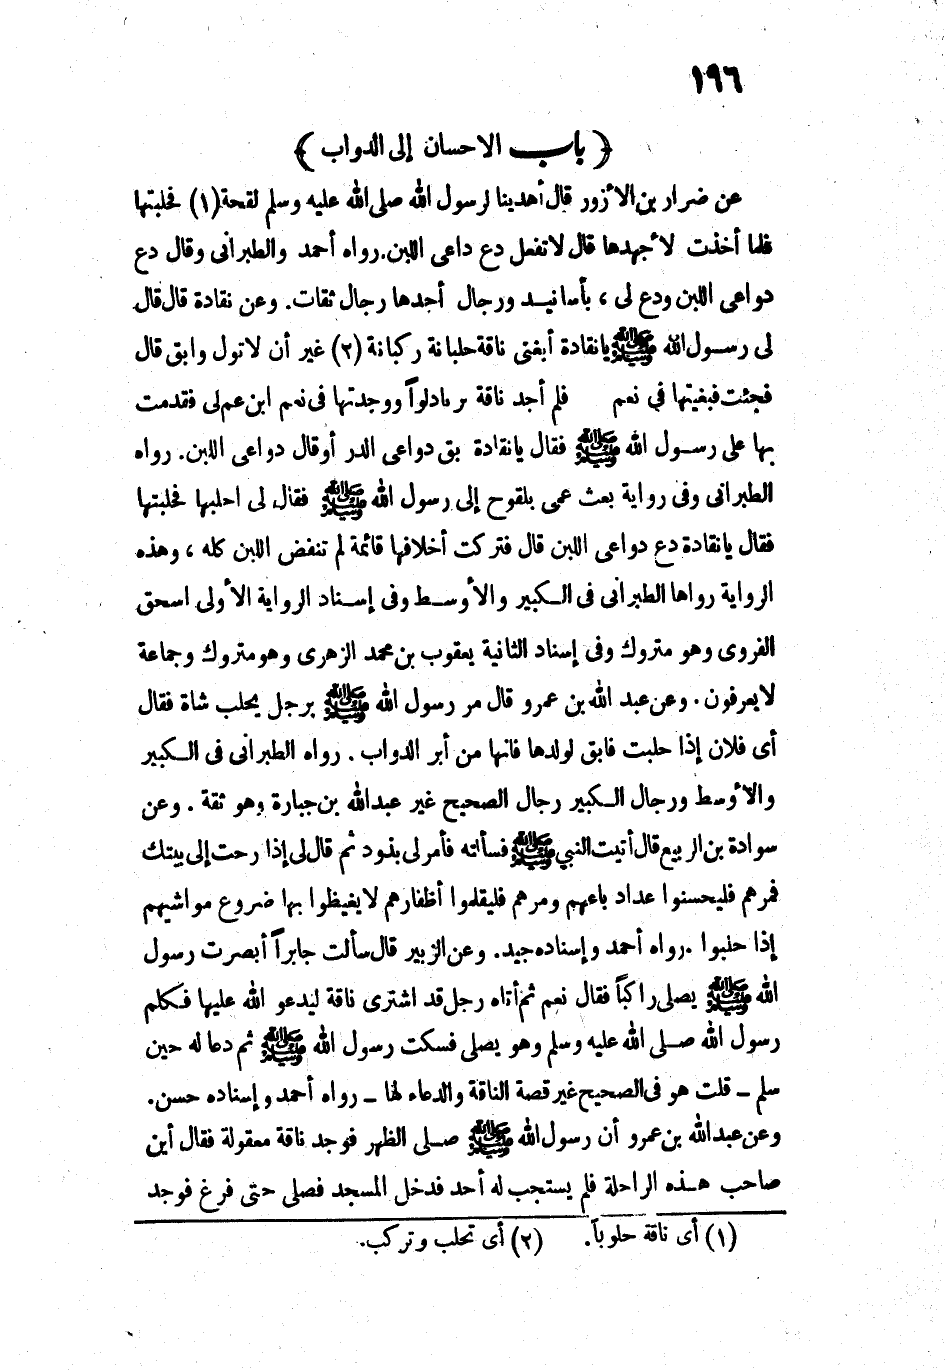 ١٩٦
﴿ باب الاحسان إلى الدواب ﴾
عن ضرار بن الأزور قال أهدينا لرسول الله صلى الله عليه وسلم لقحة (١) فحلبتها
فلما أخذت لأجهدها قال لا تفعل دع داعى اللبن. رواه أحمد والطبرانى وقال دع
دواعى اللبن ودع لى ، بأسانيد ورجال أحدها رجال ثقات. وعن نقادة قال قال
لى رسول الله ﷺ يا نقادة أبغنى ناقة حلبانة ركبانة (٢) غير أن لا تول وابق قال
فجئت فبغيتها فى نعم فلم أجد ناقة ووجدتها فى نعم ابن عم لى فقدمت
بها على رسول الله ﷺ فقال يا نقادة بق دواعى الدر أو قال دواعى اللبن. رواه
الطبرانى وفى رواية بعث عمى بلقوح إلى رسول الله ﷺ فقال لى احلبها فحلبتها
فقال يا نقادة دع دواعى اللبن قال فتركت أخلافها قائمة لم تنفض اللبن كله ، وهذه
الرواية رواها الطبرانى فى الكبير والأوسط وفى إسناد الرواية الأولى اسحق
الفروى وهو متروك وفى إسناد الثانية يعقوب بن محمد الزهرى وهو متروك وجماعة
لا يعرفون. وعن عبد الله بن عمرو قال مر رسول الله ﷺ برجل يحلب شاة فقال
أى فلان إذا حلبت فابق لولدها فانها من أبر الدواب . رواه الطبرانى فى الكبير
والأوسط ورجال الكبير رجال الصحيح غير عبد الله بن جبارة وهو ثقة . وعن
سوادة بن الربيع قال أتيت النبي ﷺ فسألته فأمر لى بذود ثم قال لى إذا رحت إلى بيتك
فمرهم فليحسنوا غداد باعهم ومرهم فليقلموا أظفارهم لا يغيظوا بها ضروع مواشيهم
إذا حلبوا . رواه أحمد وإسناده جيد. وعن الزبير قال سألت جابراً أبصرت رسول
الله ﷺ يصلى راكباً فقال نعم ثم أتاه رجل قد اشترى ناقة ليدعو الله عليها فكلم
رسول الله صلى الله عليه وسلم وهو يصلى فسكت رسول الله ﷺ ثم دعا له حين
سلم - قلت هو فى الصحيح غير قصة الناقة والدعاء لها - رواه أحمد وإسناده حسن.
وعن عبد الله بن عمرو أن رسول الله ﷺ صلى الظهر فوجد ناقة معقولة فقال أين
صاحب هذه الراحلة فلم يستجب له أحد فدخل المسجد فصلى حتى فرغ فوجد
(١) أى ناقة حلوباً. (٢) أى تحلب وتركب.